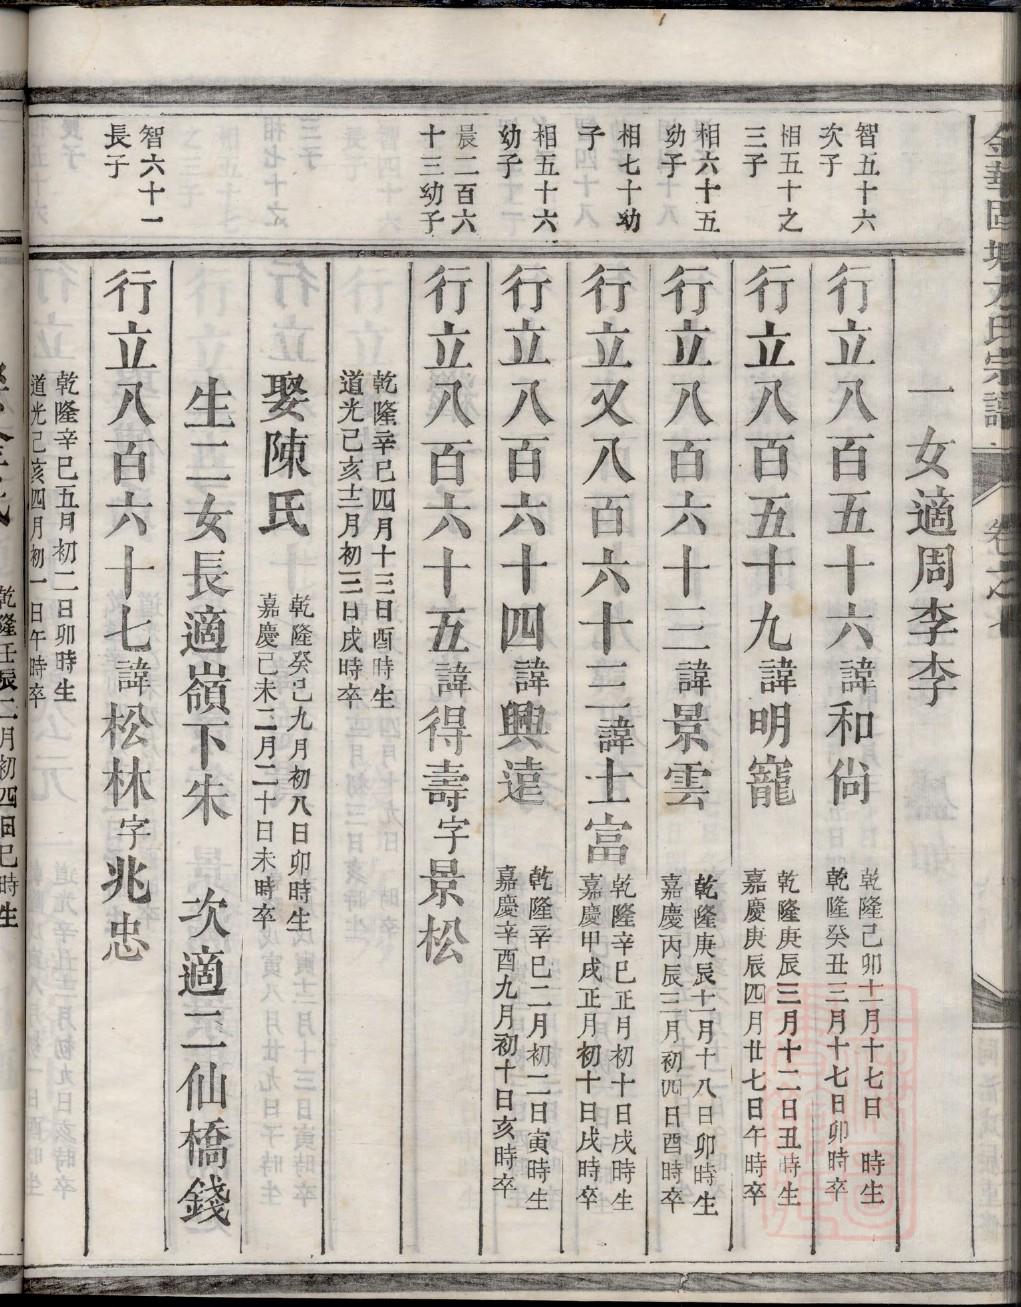 金華
氏宗譜
卷之
一女適周李李
智五十六
次子
行立八百五十六諱和尙
乾隆己卯十二月十七日 時生
乾隆癸丑三月十七日卯時卒
相五十之
三子
行立八百五十九諱明寵
乾隆庚辰三月十二日丑時生
嘉慶庚辰四月廿七日午時卒
相六十五
幼子
行立八百六十二諱景雲
乾隆庚辰十一月十八日卯時生
嘉慶丙辰三月初四日酉時卒
相七十幼
子
行立又八百六十三諱士富
乾隆辛巳正月初十日戌時生
嘉慶甲戌正月初十日戌時卒
相五十六
幼子
行立八百六十四諱興遠
乾隆辛巳二月初二日寅時生
嘉慶辛酉九月初十日亥時卒
晨二百六
十三幼子
行立八百六十五諱得壽字景松
乾隆辛巳四月十三日酉時生
道光己亥十二月初三日戌時卒
娶陳氏
乾隆癸巳九月初八日卯時生
嘉慶己未二月二十日未時卒
生二女長適嶺下朱 次適二仙橋錢
智六十一
長子
行立八百六十七諱松林字兆忠
乾隆辛巳五月初二日卯時生
道光己亥四月初一日午時卒
乾隆壬辰二月初四日巳時生